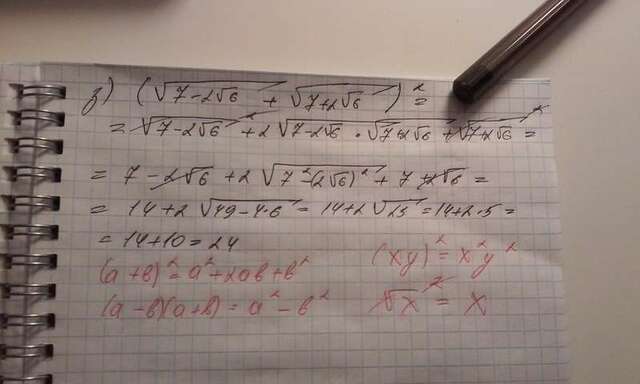 з) (√(7-2√6) + √(7+2√6))² =
= √(7-2√6)² + 2√(7-2√6) · √(7+2√6) + √(7+2√6)² =
= 7 - 2√6 + 2√(7²-(2√6)²) + 7 + 2√6 =
= 14+2√(49-4·6) = 14+2√25 = 14+2·5 =
= 14+10 = 24
(a+b)² = a²+2ab+b² (xy)² = x²y²
(a-b)(a+b) = a²-b² √x² = x